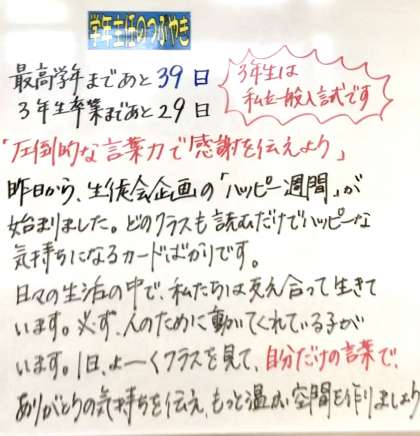 学年主任のつぶやき
最高学年まであと39日
3年生卒業まであと29日
3年生は
私立一般入試です
「圧倒的な言葉力で感謝を伝えよう」
昨日から、生徒会企画の「ハッピー週間」が
始まりました。どのクラスも読むだけでハッピーな
気持ちになるカードばかりです。
日々の生活の中で、私たちは支え合って生きて
います。必ず、人のために動いてくれている子が
います。1日、よーくクラスを見て、自分だけの言葉で、
ありがとうの気持ちを伝え、もっと温かい空間を作りましょう